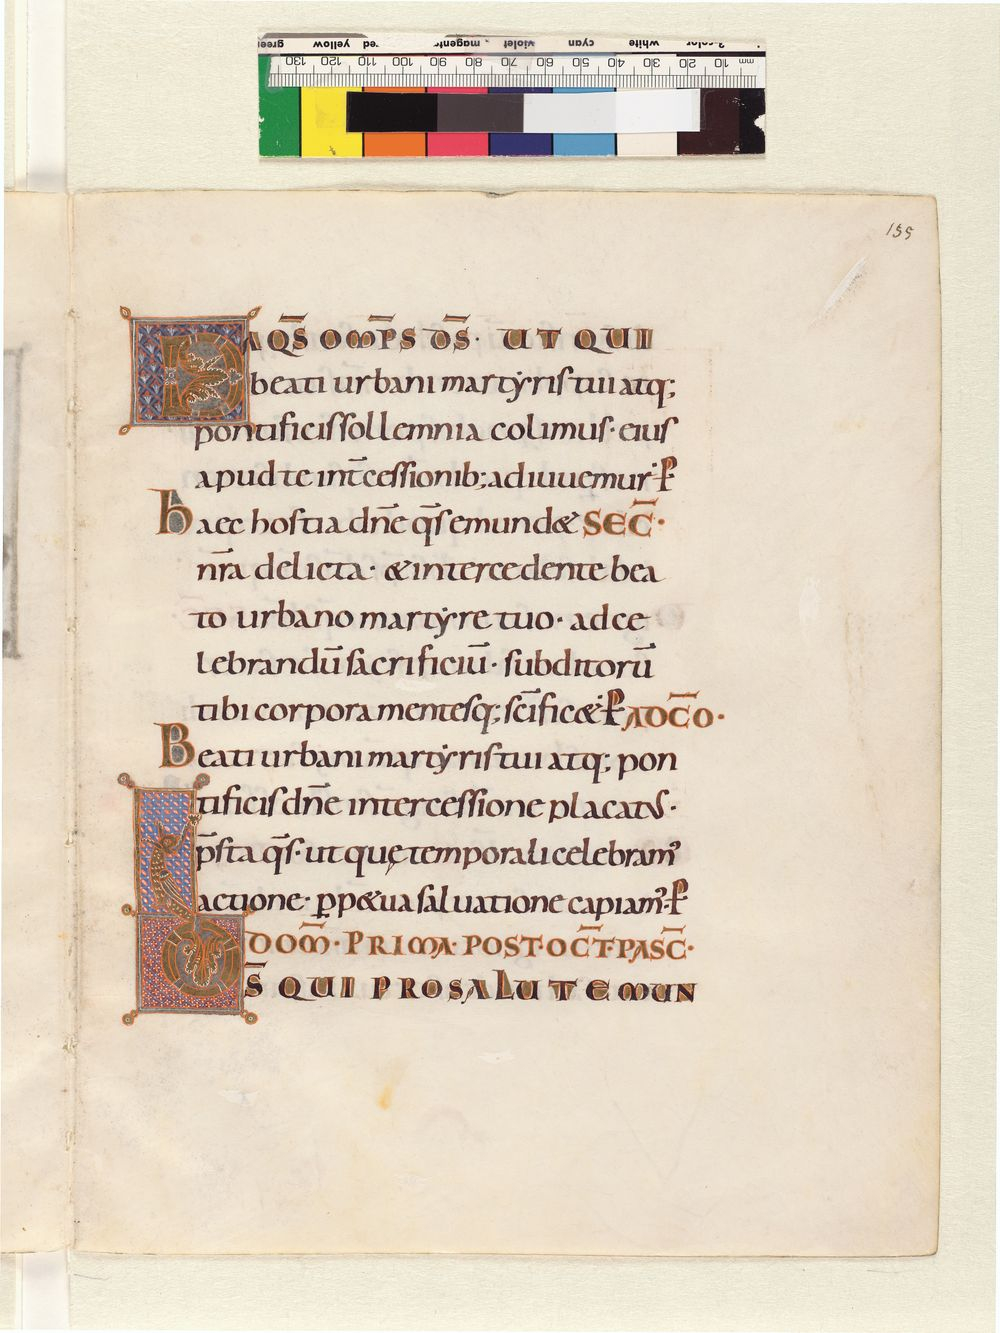 green yellow red magenta violet cyan white 3-color
130 120 110 100 90 80 70 60 50 40 30 20 10 mm
155
DA Q̄S OM̄PS D̄S· UT QUI
beati urbani martẏris tui atq;
pontificis sollemnia colimus· eius
apud te int̄cessionib; adiuuemur· ꝑ
haec hostia dn̄e q̄s emund& SEC̄·
nr̄a delicta· & intercedente bea
to urbano martẏre tuo· ad ce
lebrandū sacrificiū· subditorū
tibi corpora mentesq; sc̄ific&· ꝑ AD C̄O·
Beati urbani martẏris tui atq; pon
tificis dn̄e intercessione placatus·
p̄sta q̄s· ut quę temporali celebram᷒
actione· ꝑp&ua saluatione capiam᷒· ꝑ
DOM̄· PRIMA· POST· OC̄T· PASC̄·
D̄S QUI PRO SALUTE MUN